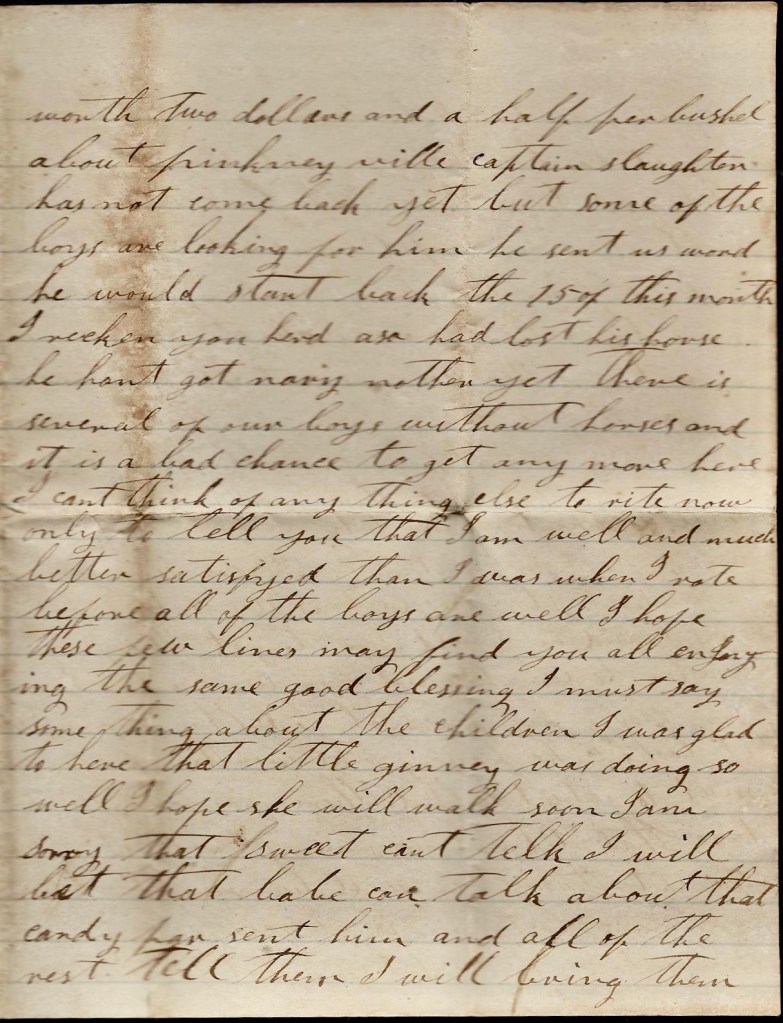 worth two dollars and a half per bushel
about pinkney ville captain slaughter
has not come back yet but some of the
boys are looking for him he sent us word
he would start back the 15 of this month
I recken you herd asa had lost his horse
he hant got nariy nother yet There is
several of our boys without horses and
it is a bad chance to get any more here
I cant think of any thing else to rite now
only to tell you that I am well and much
better satisfyed than I was when I rote
before all of the boys are well I hope
these few lines may find you all enjoy
ing the same good blessing I must say
some thing about the children I was glad
to here that little ginney was doing so
well I hope she will walk soon I am
sorry that sweet cant telk I will
bet that babe can talk about that
candy par sent him and all of the
rest Tell them I will bring them